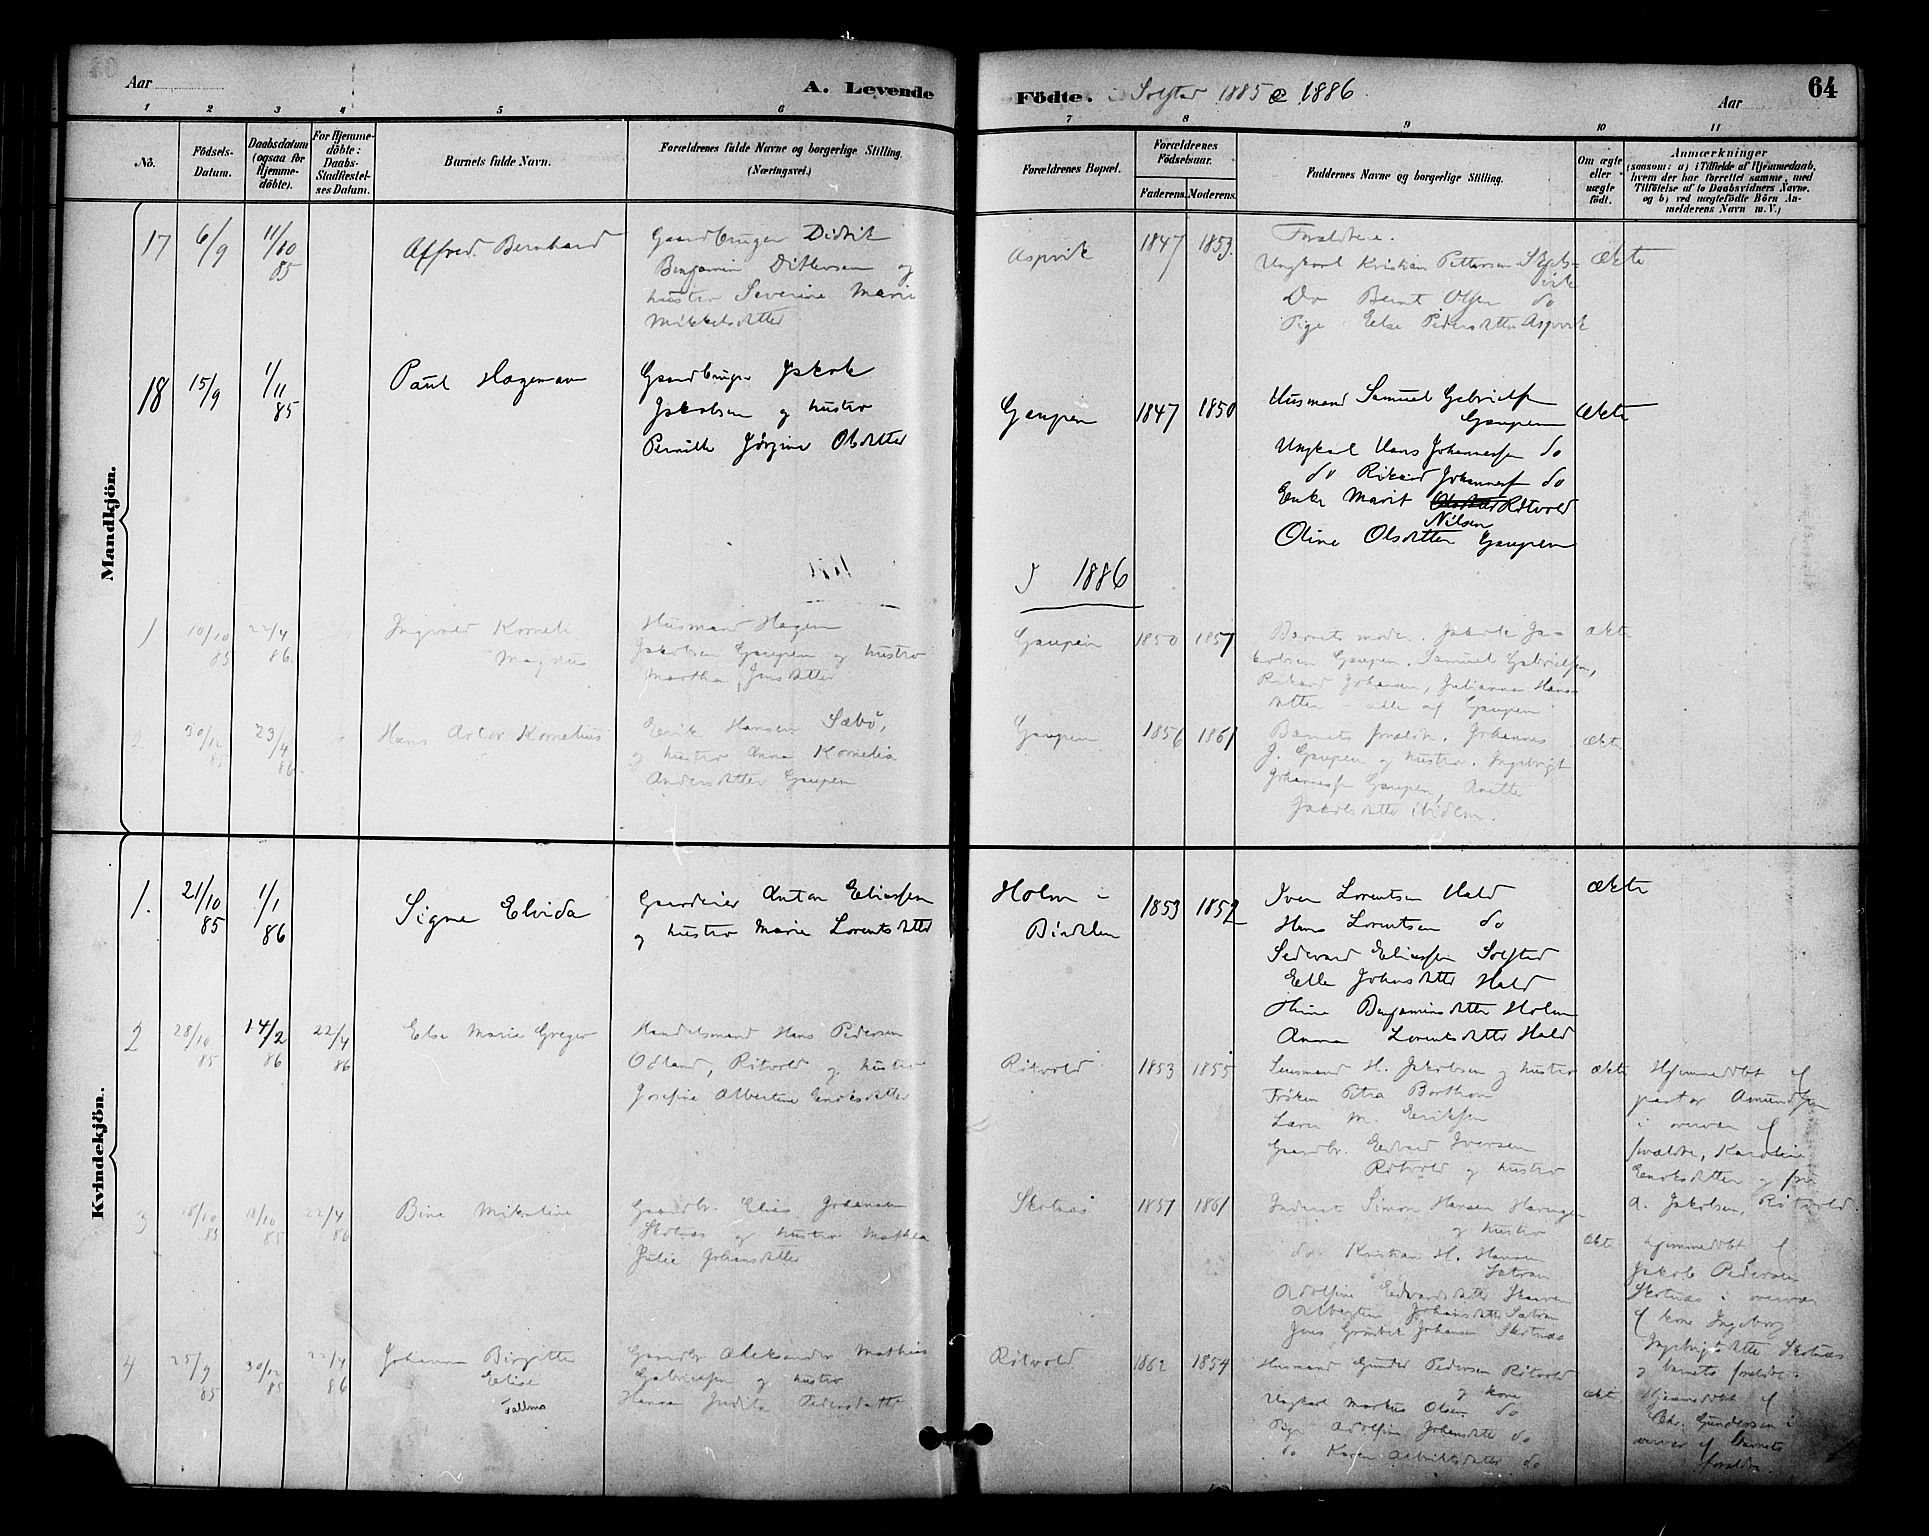 Aar
A. Levende
Födte. Solstad 1885 & 1886
Aar
64
1 2 3 4 5 6 7 8 9 10 11
No.
Födsels-Datum.
Daabsdatum (ogsaa for Hjemme-döbte).
For Hjemme-döbte: Daabs-Stadfæstel-ses Datum.
Barnets fulde Navn.
Forældrenes fulde Navne og borgerlige Stilling.
(Næringsvei.)
Forældrenes Bopæl.
Forældrenes Födselsaar.
Faderens. Moderens.
Faddernes Navne og borgerlige Stilling.
Om ægte eller uægte födt.
Anmærkninger
(saasom: a) i Tilfælde af Hjemmedaab,
hvem der har forrettet samme, med
Tilföielse af to Daabsvidners Navne.
og b) ved uægtefödte Börn An-
melderens Navn m. V.)
Mandkjön.
17 6/9 11/10 85 Alfred Bernhard
Gaardbruger Didrik
Benjamin Ditlevsen og
hustro Severine Marie
Mikkelsdatter
Aspvik 1847 1853.
Forældrene.
Ungkarl Kristian Pettersen
Do Bernt Olsen do
Pige Else Pedersdatter Aspvik
ækte
18 15/9 1/11 85 Paul Hageman
Gaardbruger Jakob
Jakobsen og hustro
Pernille Jørgine Olsdatter
Gaupen 1847 1850
Husmand Samuel Gabrielsen
Gaupen
Ungkarl Hans Johannessen do
do Rikard Johannes do
Enke Marit Nilsen Røtvold
Oline Olsdatter Gaupen
ækte
I 1886
1 10/10 85 22/4 86 Ingvald Korneli
Magnus
Husmand Hagen
Jakobsen Gaupen og hustro
Martha Jensdatter
Gaupen 1850 1857
Barnets moder. Jakob Ja-
kobsen Gaupen. Samuel Gabrielsen,
Rikard Johansen, Julianna Hans-
datter - alle af Gaupen
ækte
2 30/12 85 23/4 86 Hans Artor Kornelius
Erik Hansen Sæbø,
og hustro Anna Kornelia
Andersdatter Gaupen
Gaupen 1856 1861
Barnets forældre. Johannes
J. Gaupen og hustro. Ingebrigt
Johannessen Gaupen, Anette
Jakobsdatter ibidem.
ækte
Kvindekjön.
1. 21/10 85 1/1 86 Signe Elvida
Gaardeier Anton Eliassen
og hustro Marie Lorentsdatter
Holm i
Bindalen
1853 1852
Iver Lorentsen Hald
Hans Lorentsen do
Sedevard Eliassen Solstad
Elle Johnsdatter Hald
Benjaminsdatter Holm
Anna Lorentsdatter Hald
ækte
2 28/10 85 14/2 86 22/4 86 Else Marie Greger
Handelsmand Hans Pedersen
Odland, Røtvold og hustro
Josefine Albertine Enoksdatter
Røtvold 1853 1855
Lensmand H. Jakobsen og hustro
Frøken Petra Borthen
Lærer M. Eriksen
Gaardbr. Edvard Iversen
Røtvold og hustro
ækte
Hjemmedøbt af
pastor Amundsen
i overvær af
forældre, Karoline
Enoksdatter og fru
A. Jakobsen, Røtvold.
3 18/10 85 18/10 85 22/4 86 Bine Mikaline
Gaardbr. Elias Johansen
Skotnæs og hustro Mathea
Julie Johansdatter
Skotnæs 1857 1861
Inderst Simon Hansen Haringen
og hustro
do Kristian H. Hansen
Sætran
Adolfine Edvardsdatter Skaaren
Albertine Johansdatter Sætran
Jens Grønbek Johansen Skotnæs
ækte
hjemmedøbt af
Jakob Pedersen
Skotnæs i overvær
af kone Ingeborg
Ingebrigtsdatter Skotnæs
og barnets forældre.
4 25/9 85 30/12 85 22/4 86 Johanna Birgitte
Elise
Gaardbr. Aleksander Mathias
Gabrielsen og hustro
Hanna Judita Pedersdatter
Røtvold. 1862 1854
Husmand Gunder Pedersen Røtvold
og kone
Ungkarl Markus Olsen do
Pige Adolfine Johansdatter do
do Karen do
ækte
Hjemmedøbt af
Chr. Gundersen i
overvær af barnets
forældre.